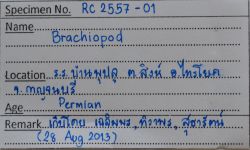 Specimen No. RC 2557-01
Name
Brachiopod
Location ร.ร. บ้านพุปลู ต.สิงห์ อ.ไทรโยค
จ.กาญจนบุรี
Age Permian
Remark เก็บโดย เฉลิมพร, ทิวาพร, สุธารัตน์
(28 Aug 2013)